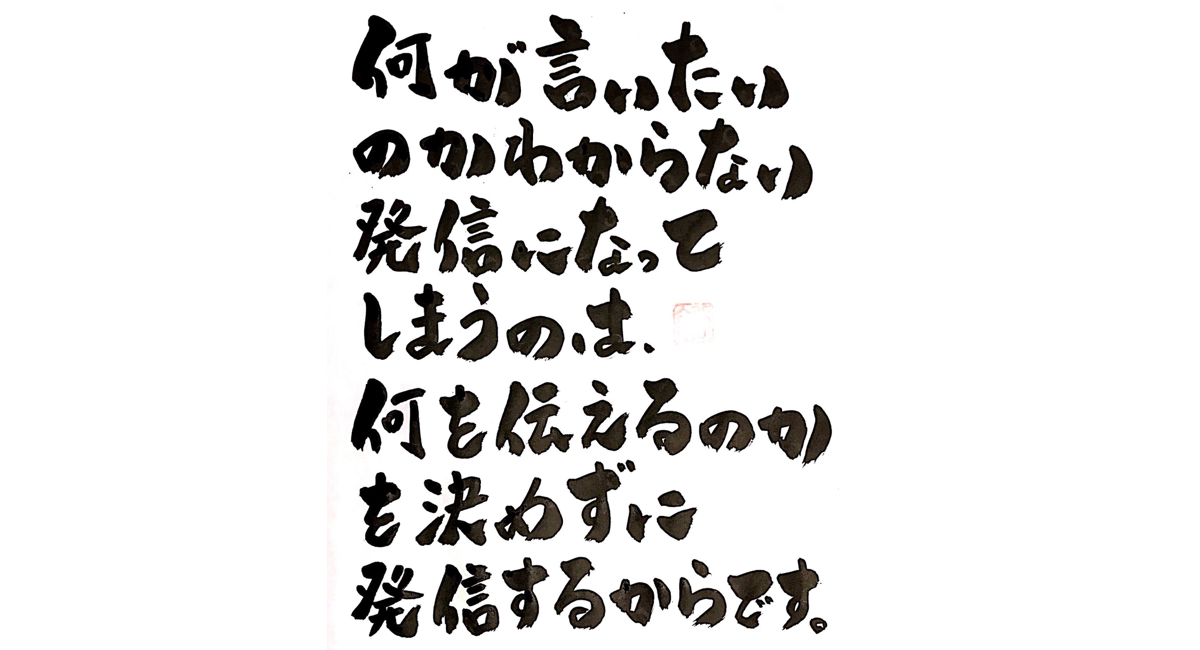 何が言いたい
のかわからない
発信になって
しまうのは、
何を伝えるのか
を決めずに
発信するからです。